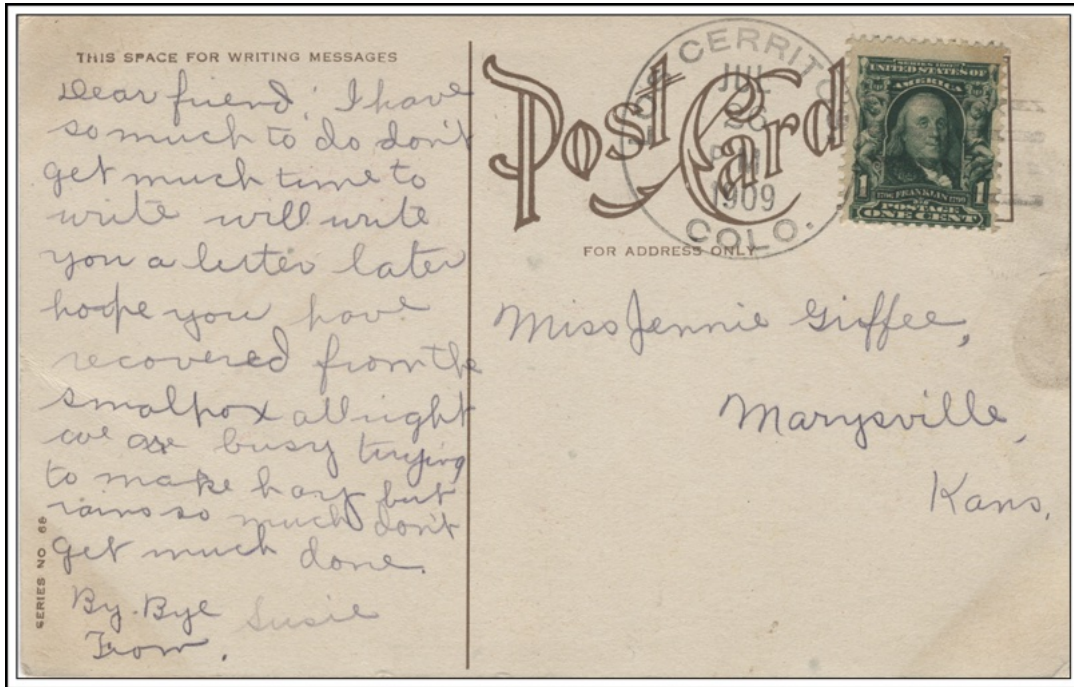 THIS SPACE FOR WRITING MESSAGES
Dear friend. I have
so much to do don't
get much time to
write will write
you a letter later
hope you have
recovered from the
smalpox allright
we are busy trying
to make hay but
rains so much don't
get much done.
By. Bye Susie
From.
SERIES NO 66
Post Card
CERRITO
JUL
P.M.
1909
COLO.
SERIES 1902
UNITED STATES OF
AMERICA
1 1790 FRANKLIN 1790 1
POSTAGE
ONE CENT
FOR ADDRESS ONLY
Miss Jennie Giffee,
Marysville,
Kans.